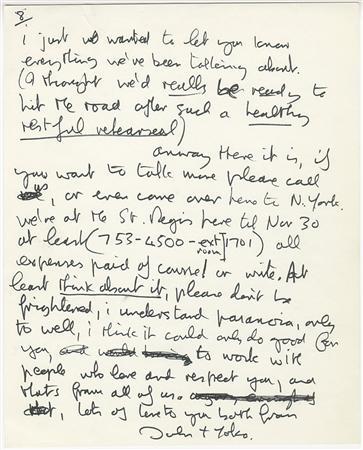 8.
i just wanted to let you know
everything we've been talking about.
(i thought we'd really be ready to
hit the road after such a healthy
restful rehearsal)
anyway there it is, if
you want to talk more please call
us, or even come over here to N. York.
we're at the St. Regis here til Nov 30
at least (753-4500-ext/room 1701) all
expenses paid of course! or write. At
least think about it, please don't be
frightened, i understand paranoia, only
to well, i think it could only do good for
you, to work with
people who love and respect you, and
thats from all of us
, lots of love to you both from
John + Yoko.